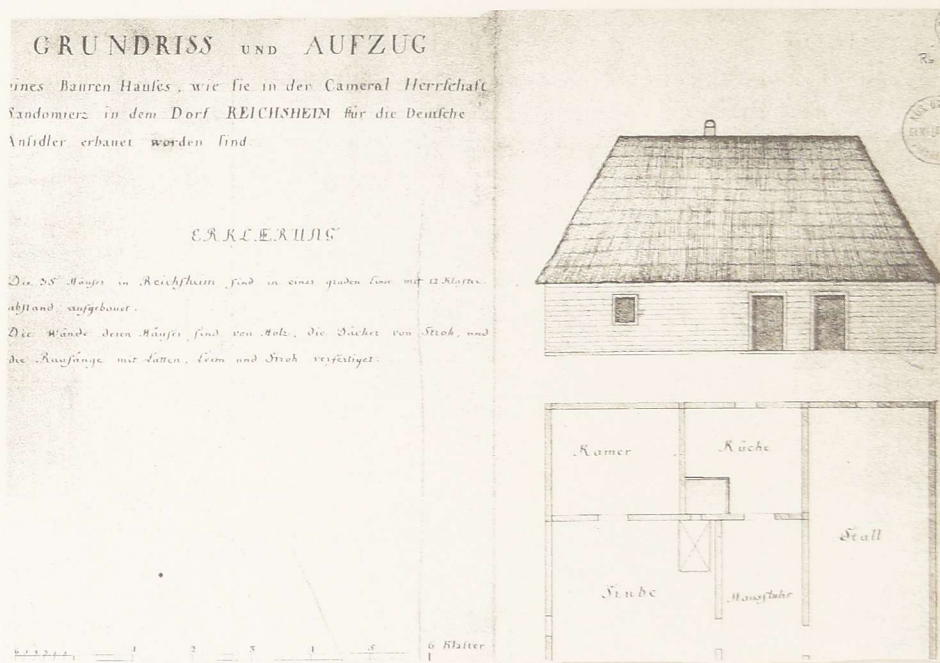 GRUNDRISS UND AUFZUG
eines Bauren Hauses, wie sie in der Cameral Herrschaft
Sandomierz in dem Dorf REICHSHEIM für die Deutsche
Ansidler erbauet worden sind.
ERKLÆRUNG
Die 35 Häuser in Reichsheim sind in einer graden Linie mit 12 Klafter
abstand aufgebauet.
Die Wände deren Häuser sind von Holz, die Dächer von Stroh, und
die Raufänge mit Latten, Leim und Stroh verfertiget.
Kamer
Küche
Stall
Stube
1 2 3 4 5 6 Klafter